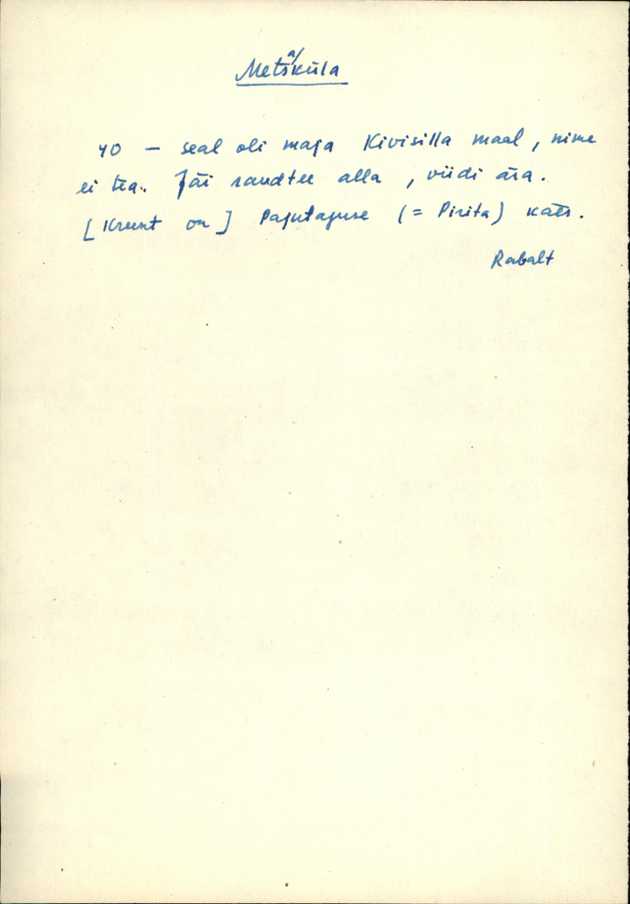 Metsaküla
40 – seal oli maja Kivisilla maal, nime
ei tea. Jäi raudtee alla, viidi ära.
[Krunt on] Pajutaguse (= Pirita) käes.
Rabalt